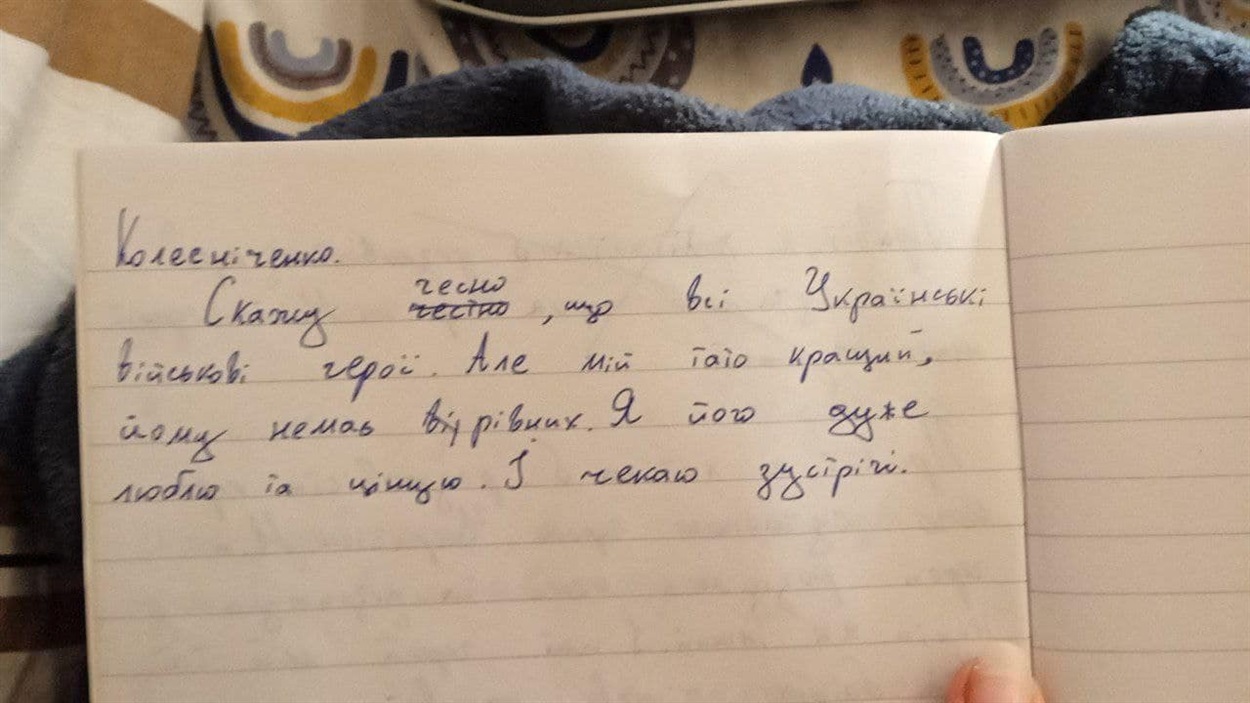 Колесніченко.
Скажу чесно, що всі Українські
військові герої. Але мій тато кращий,
йому немає рівних. Я його дуже
люблю та ціную. І чекаю зустрічі.